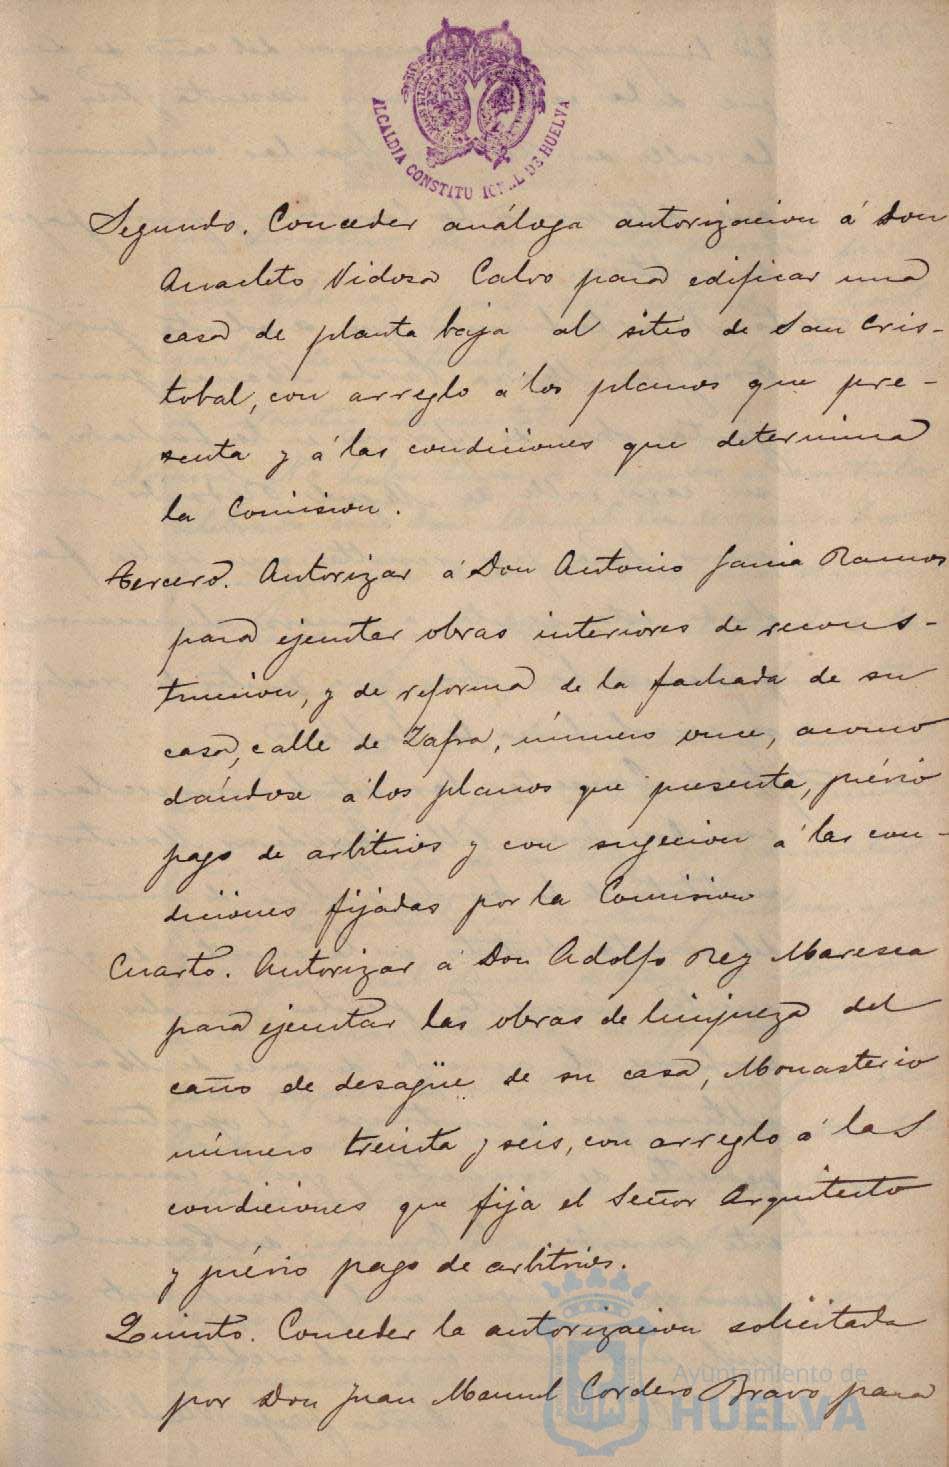 ALCALDIA CONSTITUCIONAL DE HUELVA
Segundo. Conceder análoga autorizacion á Don
Anacleto Vidosa Calvo para edificar una
casa de planta baja al sitio de San Cris-
tobal, con arreglo á los planos que pre-
senta y á las condiciones que determina
la Comision.
Tercero. Autorizar á Don Antonio Garcia Ramos
para ejecutar obras interiores de recons-
truccion, y de reforma de la fachada de su
casa, calle de Zafra, número once, acomo
dándose á los planos que presenta, prévio
pago de arbitrios y con sujecion á las con-
diciones fijadas por la Comision
Cuarto. Autorizar á Don Adolfo Rey Maresca
para ejecutar las obras de limpieza del
caño de desagüe de su casa, Monasterio
número treinta y seis, con arreglo á las
condiciones que fija el Señor Arquitecto
y prévio pago de arbitrios.
Quinto. Conceder la autorizacion solicitada
por Don Juan Manuel Cordero Bravo para
Ayuntamiento de
HUELVA